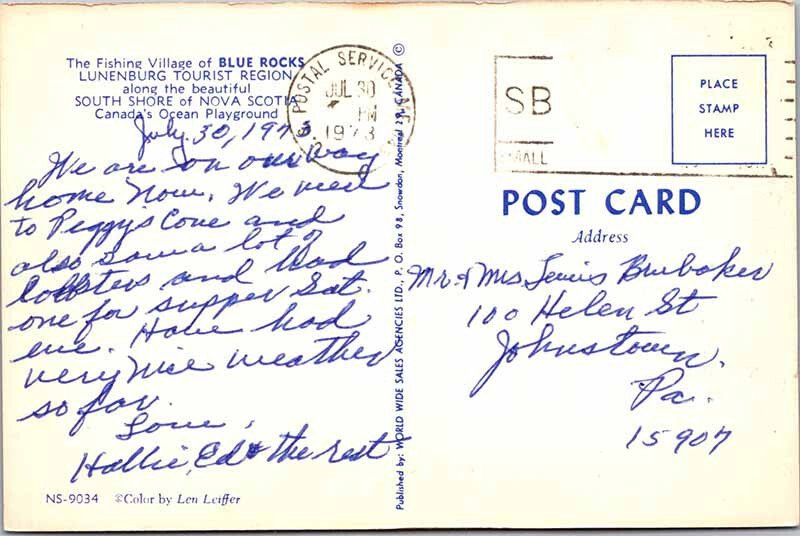 The Fishing Village of BLUE ROCKS
LUNENBURG TOURIST REGION
along the beautiful
SOUTH SHORE of NOVA SCOTIA
Canada's Ocean Playground
July 30, 1973
We are on our way
home now. We went
to Peggys Cove and
also saw a lot of
lobsters and had
one for supper Sat.
eve. Have had
very nice weather
so far.
Love,
Hallie, Ed & the rest
NS-9034 ©Color by Len Leiffer
Published by: WORLD WIDE SALES AGENCIES LTD., P. O. Box 98, Snowdon, Montreal 29, CANADA ©
POSTAL SERVICE
JUL 30
PM
1973
SB
PLACE
STAMP
HERE
POST CARD
Address
Mr. & Mrs Lewis Brubaker
100 Helen St
Johnstown,
Pa.
15907